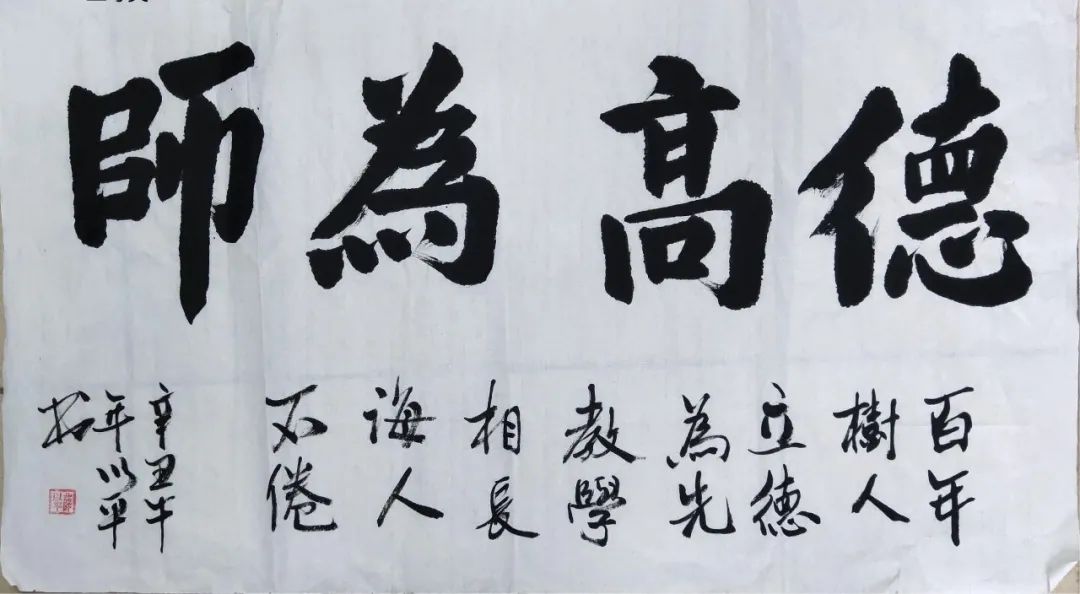 德高為師
百年
樹人
立德
為先
教學
相長
誨人
不倦
辛丑牛
年以平
书